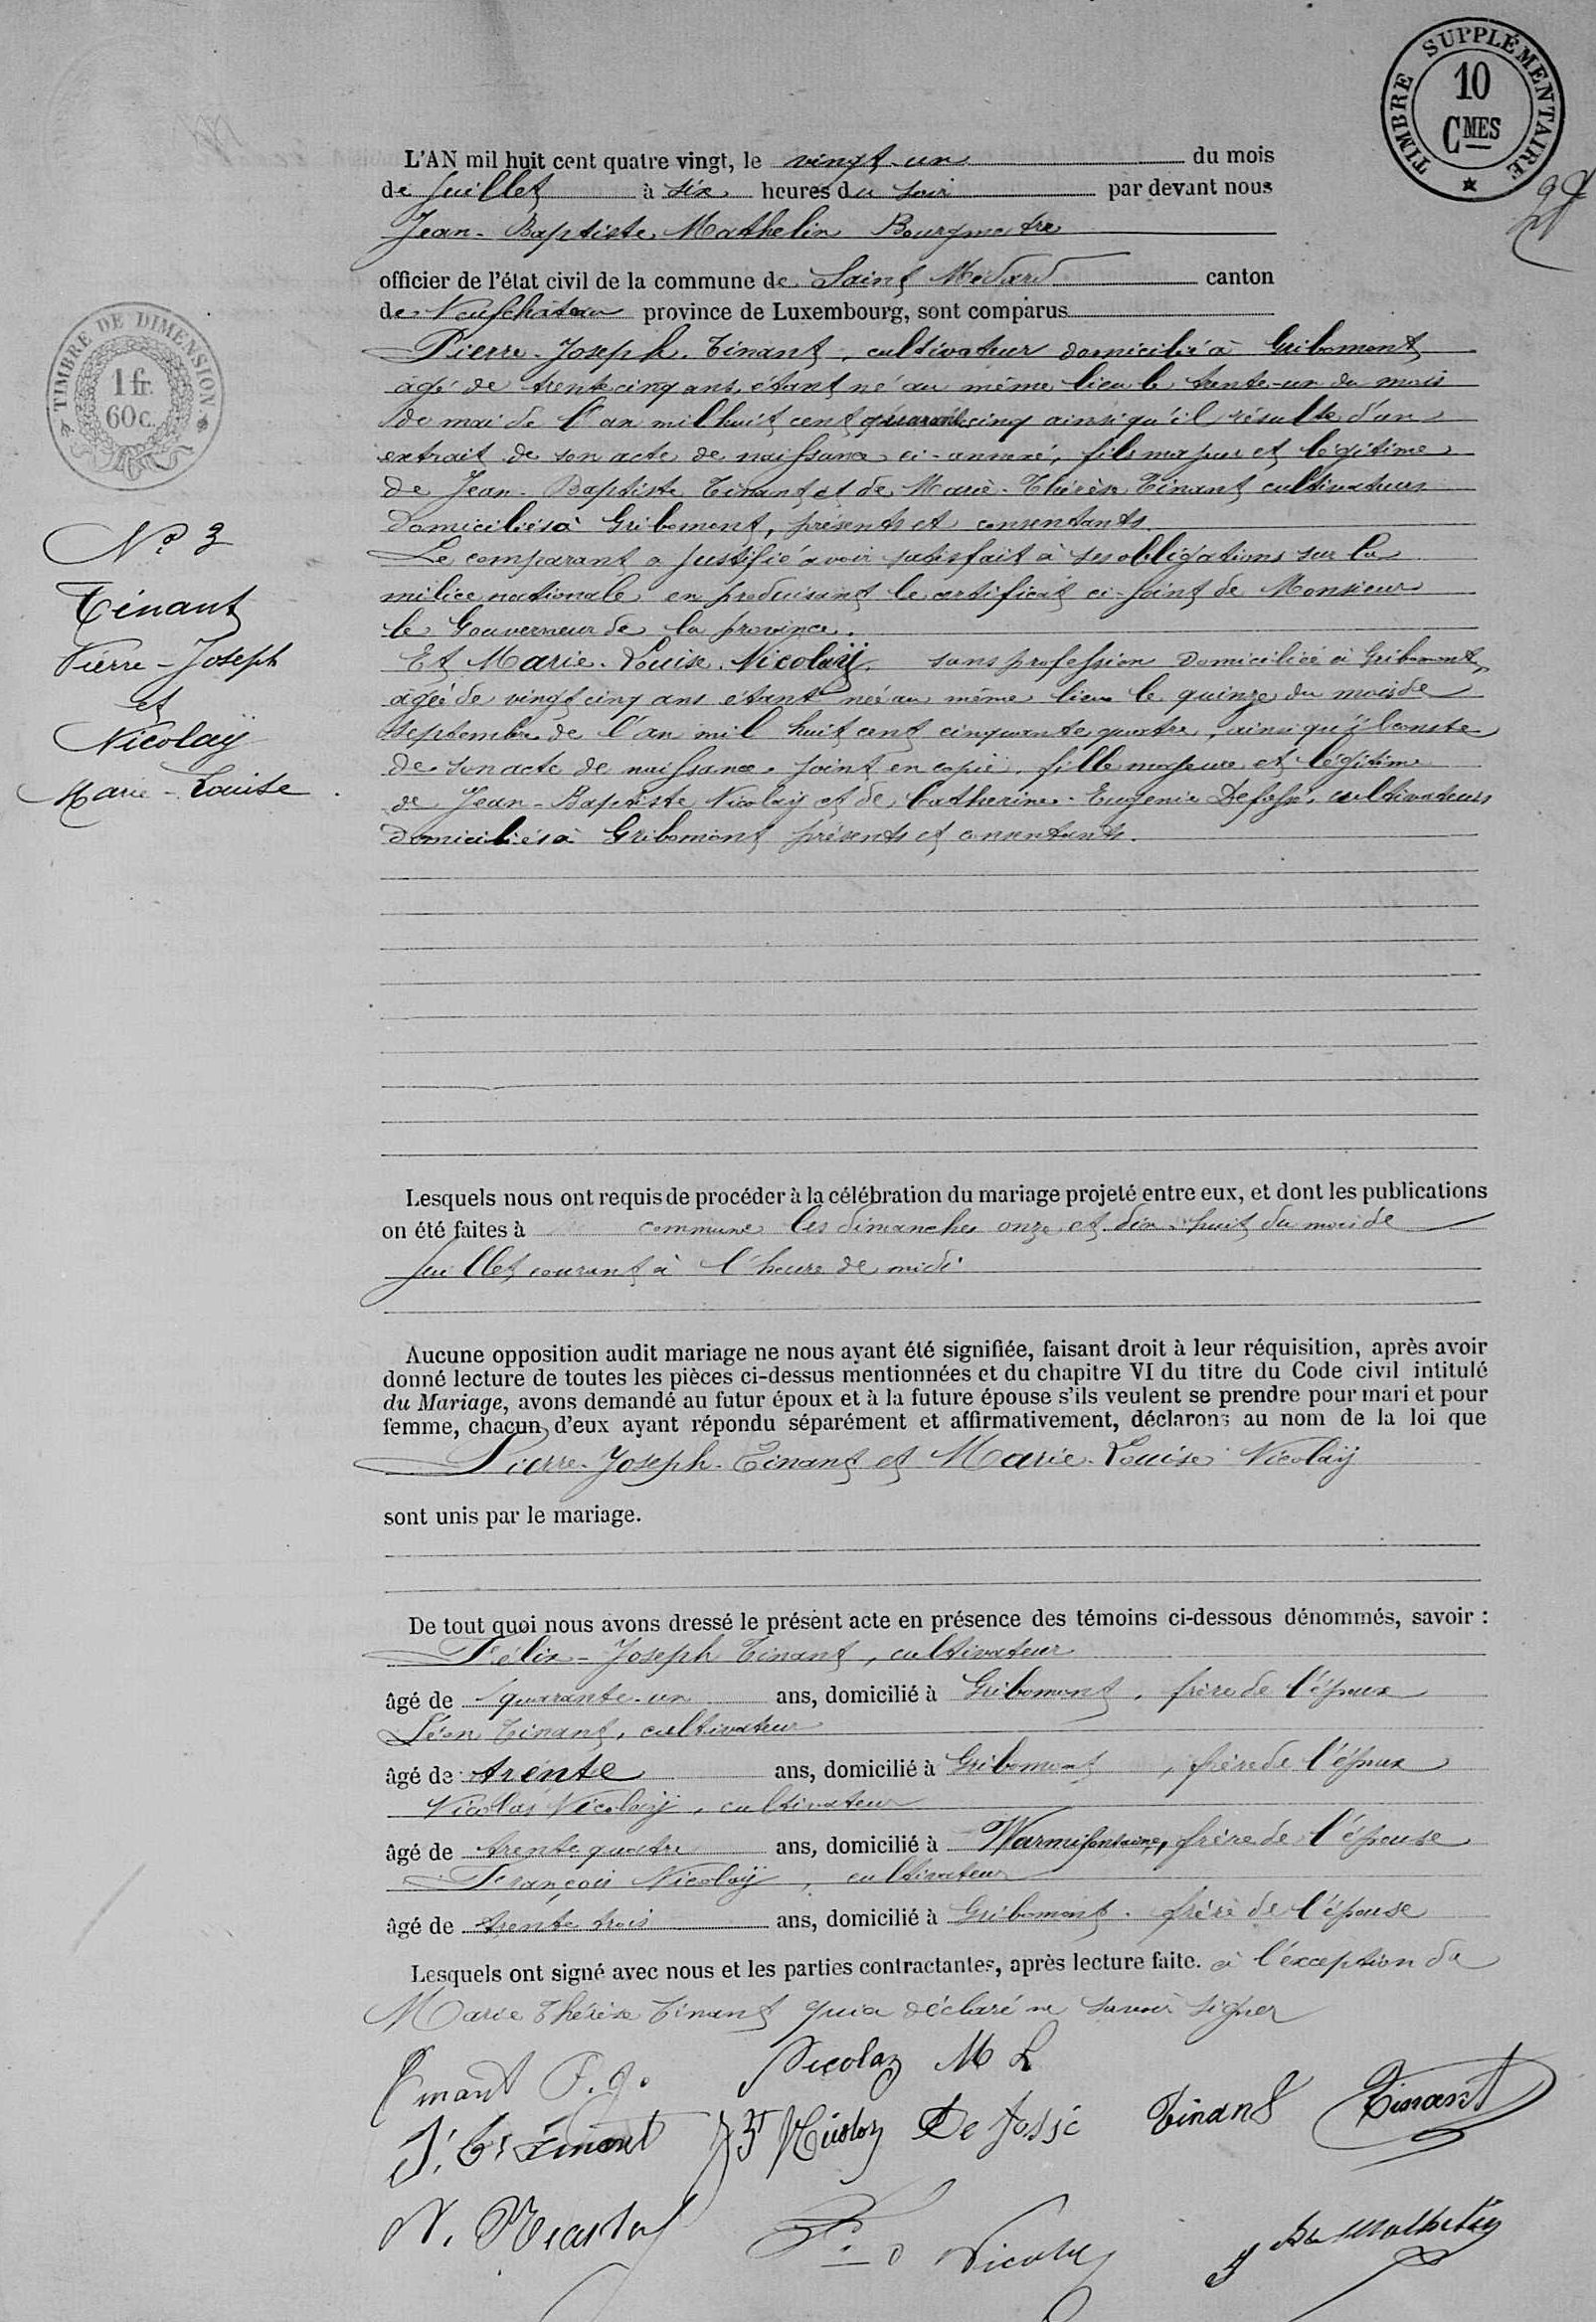 TIMBRE SUPPLÉMENTAIRE
10
CMES
L'AN mil huit cent quatre vingt, le vingt-un du mois
de Juillet à six heures du soir par devant nous
Jean-Baptiste Mathelin Bourgmestre
officier de l'état civil de la commune de Saint Médard canton
de Neufchâteau province de Luxembourg, sont comparus
TIMBRE DE DIMENSION
1 fr.
60 c.
Pierre-Joseph Tinant, cultivateur domicilié à Gribomont
âgé de trente cinq ans, étant né au même lieu le trente-un du mois
de mai de l'an mil huit cent quarante cinq ainsi qu'il résulte d'un
extrait de son acte de naissance ci-annexé, fils majeur et légitime
de Jean-Baptiste Tinant et de Marie-Thérèse Tinant cultivateurs
domiciliés à Gribomont, présents et consentants.
Le comparant a justifié avoir satisfait à ses obligations sur la
milice nationale en produisant le certificat ci-joint de Monsieur
le Gouverneur de la province.
Et Marie-Louise Nicolaÿ, sans profession domiciliée à Gribomont,
âgée de vingt cinq ans étant née au même lieu le quinze du mois de
septembre de l'an mil huit cent cinquante quatre, ainsi qu'il conste
de son acte de naissance joint en copie, fille majeure et légitime
de Jean-Baptiste Nicolaÿ et de Catherine-Eugenie Defossé, cultivateurs
domiciliés à Gribomont présents et consentants.
No 3
Tinant
Pierre-Joseph
et
Nicolaÿ
Marie-Louise
Lesquels nous ont requis de procéder à la célébration du mariage projeté entre eux, et dont les publications
on été faites à commune les dimanches onze et dix-huit du mois de
juillet courant à l'heure de midi
Aucune opposition audit mariage ne nous ayant été signifiée, faisant droit à leur réquisition, après avoir
donné lecture de toutes les pièces ci-dessus mentionnées et du chapitre VI du titre du Code civil intitulé
du Mariage, avons demandé au futur époux et à la future épouse s'ils veulent se prendre pour mari et pour
femme, chacun d'eux ayant répondu séparément et affirmativement, déclarons au nom de la loi que
Pierre-Joseph Tinant et Marie-Louise Nicolaÿ
sont unis par le mariage.
De tout quoi nous avons dressé le présent acte en présence des témoins ci-dessous dénommés, savoir :
Félix-Joseph Tinant, cultivateur
âgé de quarante-un ans, domicilié à Gribomont, frère de l'époux
Léon Tinant, cultivateur
âgé de trente ans, domicilié à Gribomont, frère de l'époux
Nicolas Nicolaÿ, cultivateur
âgé de trente quatre ans, domicilié à Warmifontaine, frère de l'épouse
François Nicolaÿ, cultivateur
âgé de trente trois ans, domicilié à Gribomont, frère de l'épouse
Lesquels ont signé avec nous et les parties contractantes, après lecture faite. à l'exception de
Marie Thérèse Tinant qui a déclaré ne savoir signer
Tinant P.J. Nicolay M L
J. Bt Tinant JBt Nicolay De fossé Tinant Tinant
N. Nicolay Nicolay J Bte Mathelin